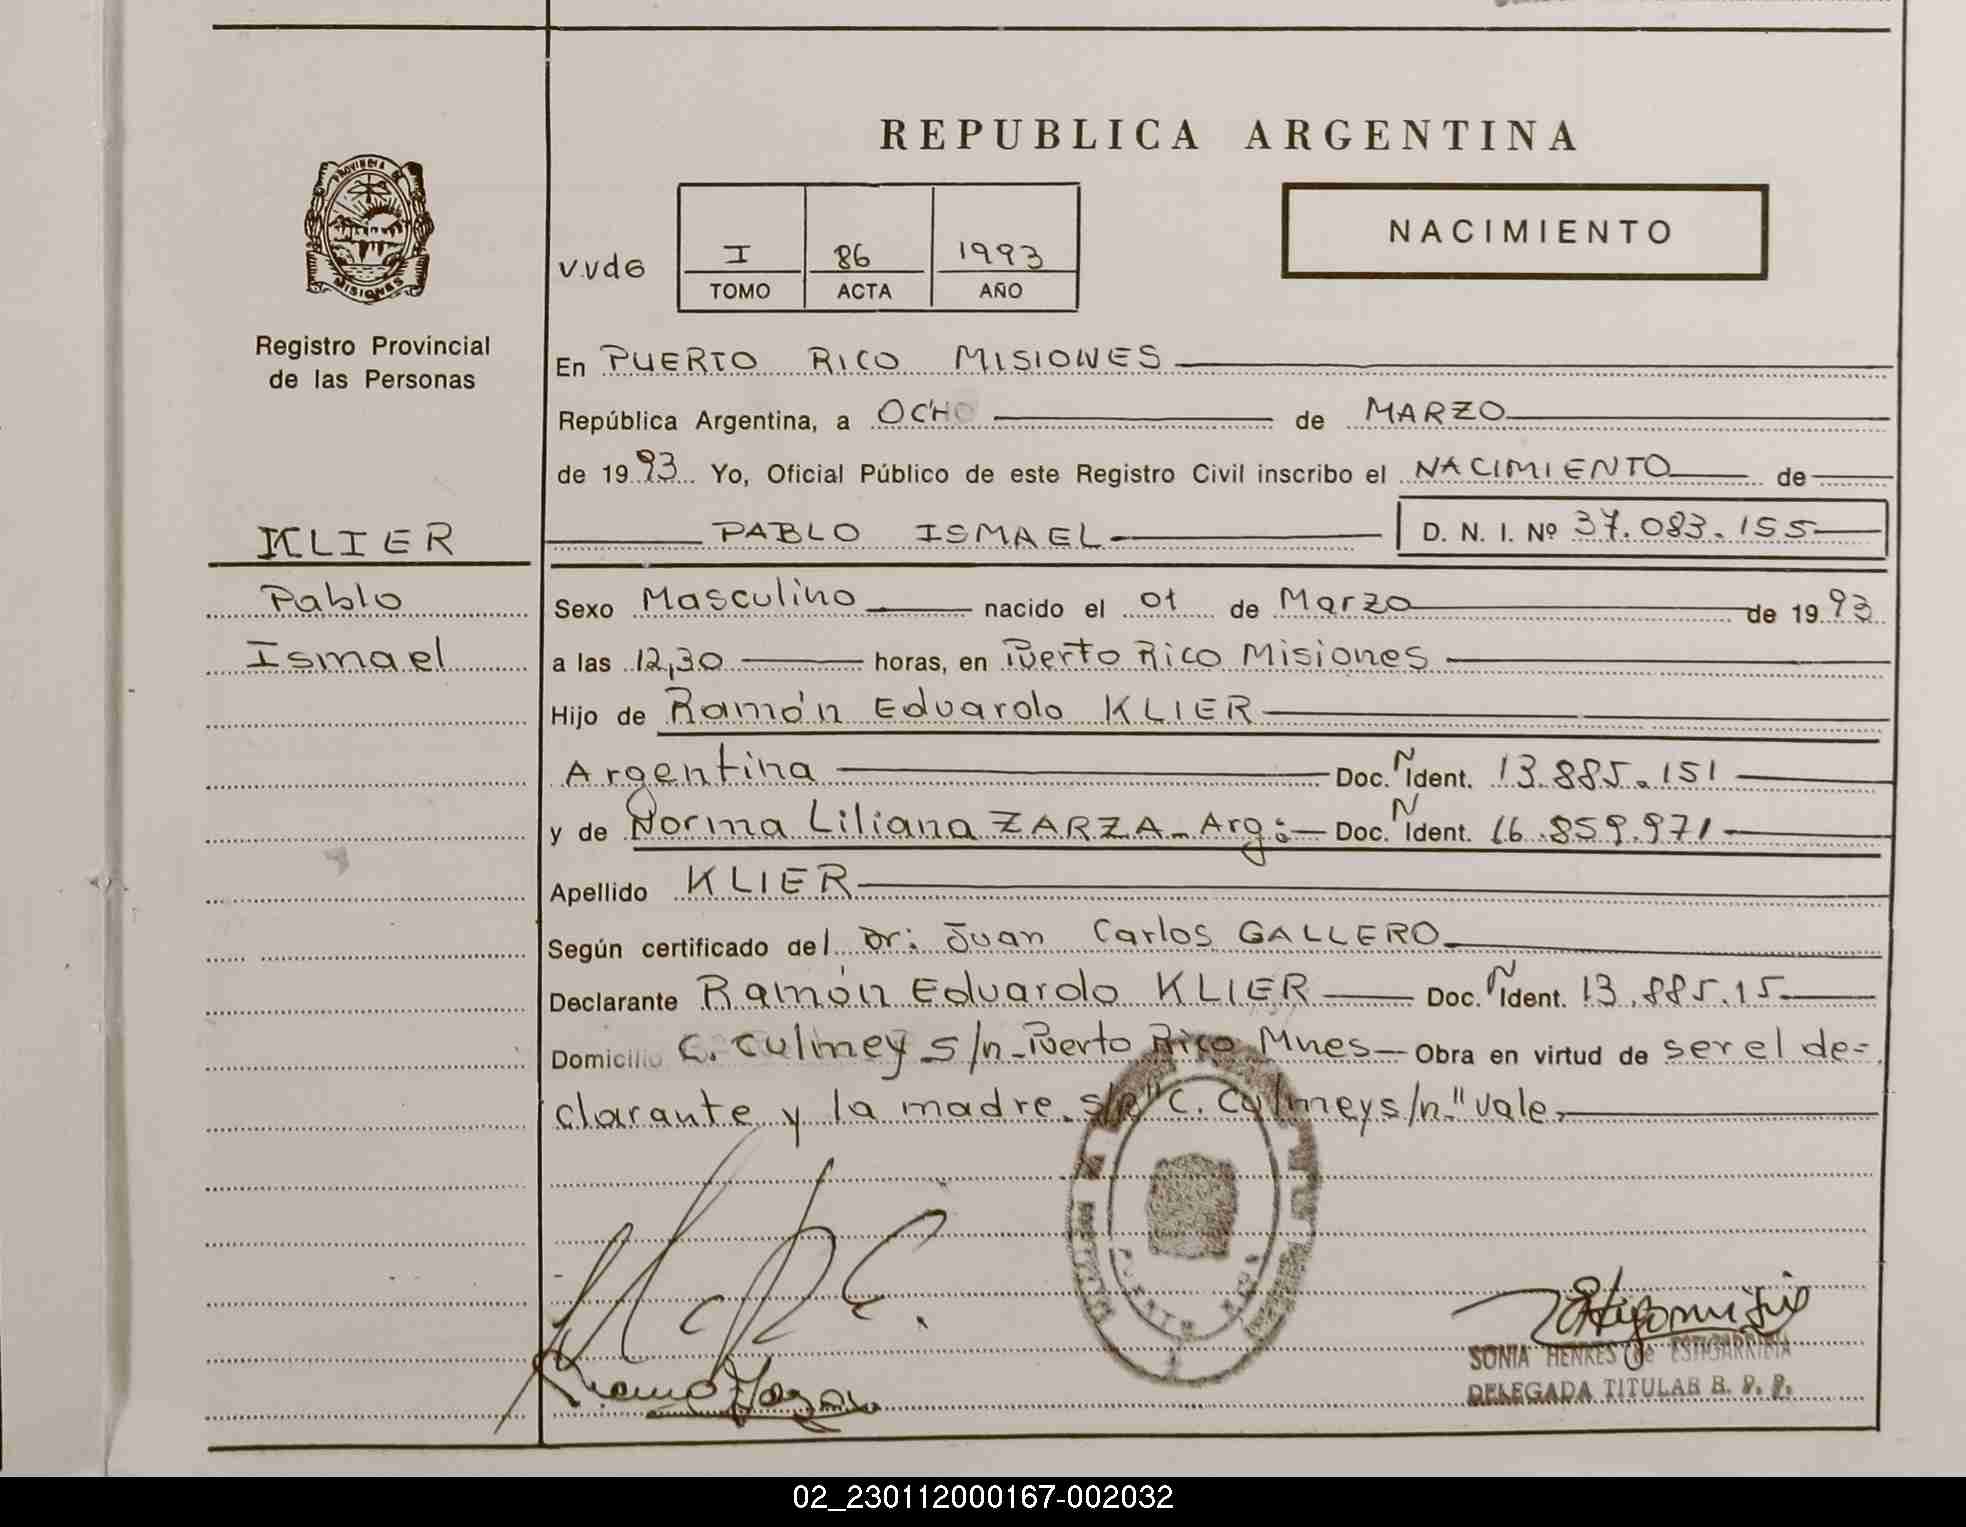 REPUBLICA ARGENTINA
PROVINCIA DE
MISIONES
Registro Provincial
de las Personas
v.vd6
I 86 1993
TOMO ACTA AÑO
NACIMIENTO
En PUERTO RICO MISIONES
República Argentina, a OCHO de MARZO
de 1993 Yo, Oficial Público de este Registro Civil inscribo el NACIMIENTO de
KLIER
PABLO ISMAEL D. N. I. Nº 37.083.155
Pablo
Ismael
Sexo Masculino nacido el 01 de Marzo de 1993
a las 12,30 horas, en Puerto Rico Misiones
Hijo de Ramón Eduardo KLIER
Argentina Doc. Ñ Ident. 13.885.151
y de Norma Liliana ZARZA - Arg: Doc. Ñ Ident. 16.859.971
Apellido KLIER
Según certificado del Dr: Juan Carlos GALLERO
Declarante Ramón Eduardo KLIER Doc. Ñ Ident. 13.885.15
Domicilio C. Culmey s/n - Puerto Rico Mnes - Obra en virtud de ser el de=
clarante y la madre. s/r "C. Culmey s/n." vale.
PUERTO RICO
SONIA HENKES de ESTIGARRIBIA
DELEGADA TITULAR R. P. P.
02_230112000167-002032